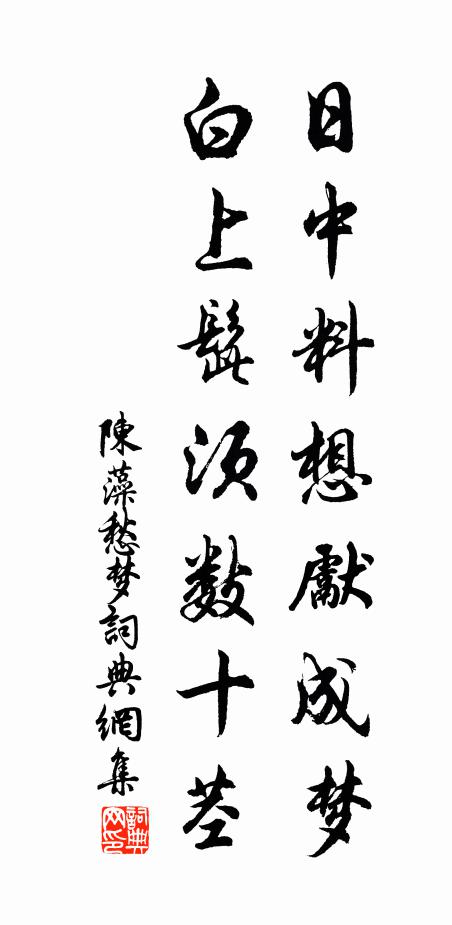 日中料想獻成梦
白上髭须数十茎
陳藻愁梦詞典網集
詞典网印